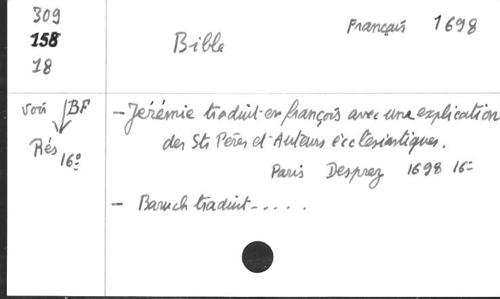 309
158
18
Bible
Français 1698
voir BF
Rés 16º
- Jérémie traduit en françois avec une explication
des Sts Pères et Auteurs écclésiastiques.
Paris Desprez 1698 16º
- Baruch traduit - . . . . .